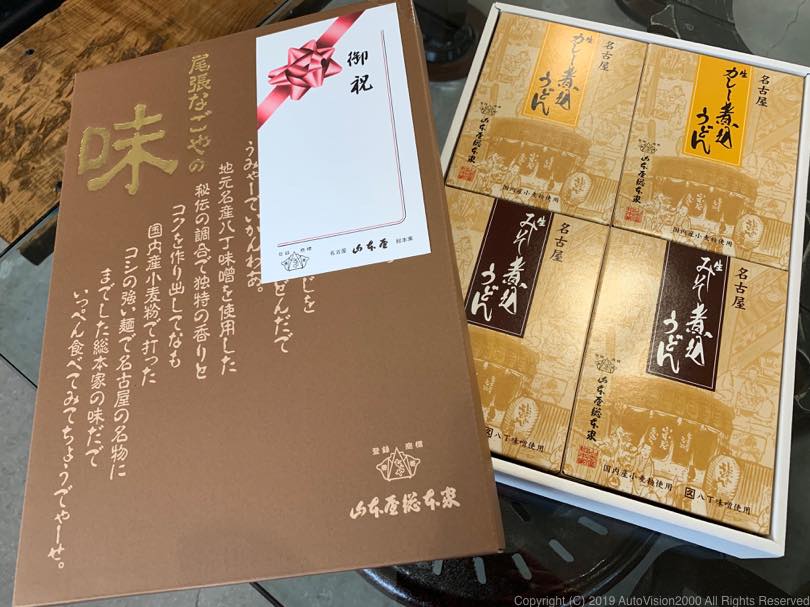 尾張なごやの
味
うみゃーでいかんわあ。
じを
どんだで
地元名産八丁味噌を使用した
秘伝の調合で独特の香りと
コクを作り出してなも
国内産小麦粉で打った
コシの強い麺で名古屋の名物に
までした総本家の味だで
いっぺん食べてみてちょうでゃーせ。
登録 商標
山本屋総本家
御祝
登録 商標
名古屋 山本屋 総本家
名古屋
生
カレー煮込
うどん
山本屋総本家
国内産小麦粉使用
名古屋
生
カレー煮込
うどん
山本屋総本家
国内産小麦粉使用
名古屋
生
みそ煮込
うどん
八丁味噌使用
名古屋
生
みそ煮込
うどん
山本屋総本家
国内産小麦粉使用
八丁味噌使用
Copyright (C) 2019 AutoVision2000 All Rights Reserved